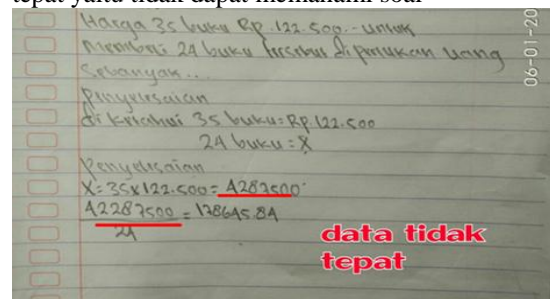 tepat yaitu tidak dapat memahami soal
Harga 35 buku Rp. 122.500.- untuk
Membeli 24 buku tersebut diperlukan uang
Sebanyak...
Penyelesaian
diketahui 35 buku = Rp. 122.500
24 buku = X
Penyelesaian
X = 35 x 122.500 = 4287500
42287500 = 178645.84
24
data tidak
tepat
06-01-20